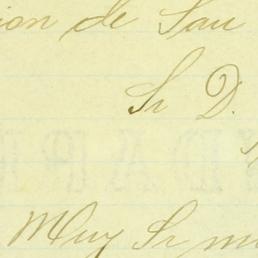 ion de San
Sr D.
Muy Sr m